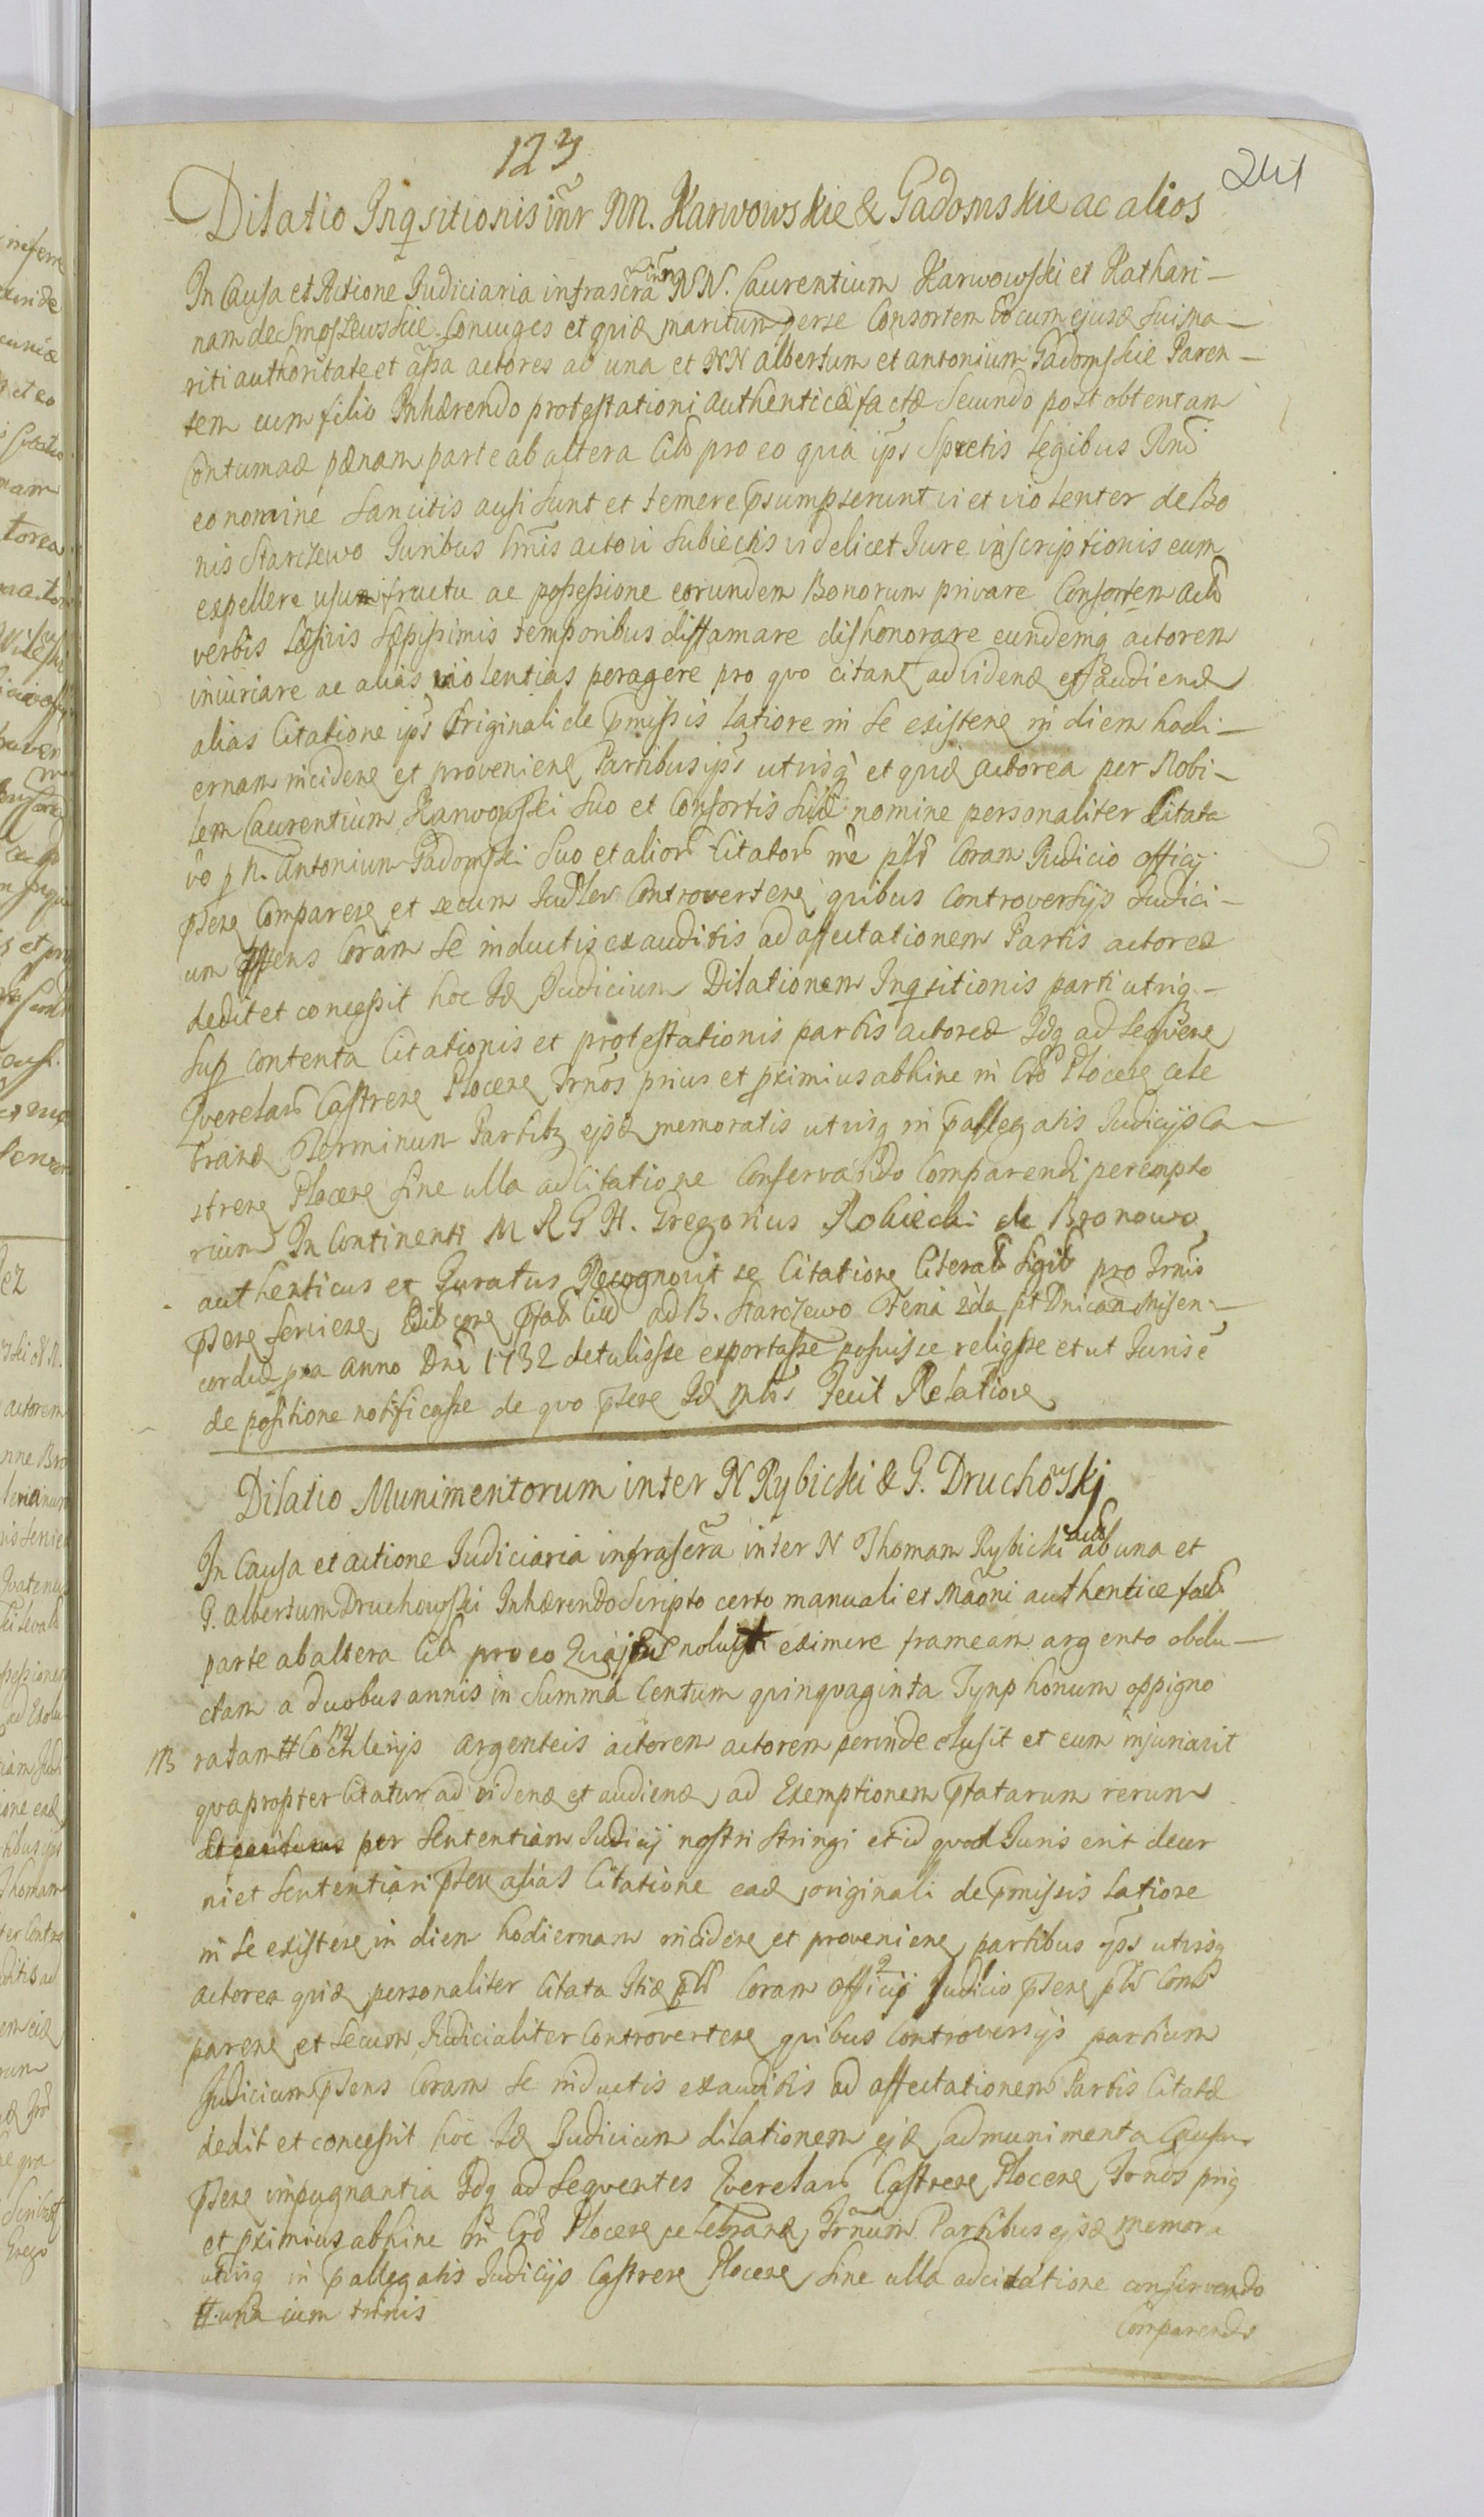 123
241
Dilatio Inqsitionis intr NN. Karwowskie & Gadomskie ac alios
In Causa et Actione Judiciaria infrascra intr NN. Laurentium Karwowski et Kathari-
nam de Smoszewskie Conuges et quid maritum perse Consortem vo cum ejusd sui ma-
riti authoritate et assa actores ab una et NN Albertum et Antonium Gadomskie Paren-
tem cum filio Inhærendo protestationi authenticè factæ Secundo post obtentam
Contumac pænam parte ab altera Citt pro eo quia ips Spretis legibus Rni
eo nomine Sancitis ausi sunt et temere psumpserunt vi et violenter de Bo
nis Starczewo Juribus Smis actori Subiectis videlicet Jure inscriptionis eum
expellere usumfructu ac possessione eorundem Bonorum privare Consortem act
verbis læsivis sæpissimis temporibus diffamare dishonorare eundemq actorem
iniuriare ac alias violentias peragere pro quo citant ad vidend et audiend
alias Citatione ips Originali de pmissis latiore in se existen in diem hodi-
ernam inciden et provenien Partibus ips utrisq et quid actorea per Nobi-
lem Laurentium Karwowski Suo et Consortis suæ nomine personaliter Citata
vo p N. Antonium Gadomski Suo et alior Citator nne ptr Coram Judicio officij
pten Comparen et secum Judler Controverten quibus Controversijs Judici-
um ptens Coram Se inductis exauditis ad affectationem Partis actoreæ
dedit et concessit hoc Id Judicium Dilationem Inqsitionis parti utriq-
Sup contenta Citationis et protestationis partis actoreæ Idq ad Seqven
Qverelar Castren Plocen Trnos prius et pximius abhinc in Cro Plocen cele
brand Terminum Partibq ejsd memoratis utrisq in pallegatis Judicijs Ca-
stren Plocen sine ulla adcitatione Conservando Comparendi perempto
rium In Continenti M R G H. Gregorius Robiecki de Bronowo
authenticus et Juratus Recognovit se Citatione literat Sigil pro Trnis
pten servien Edit cone pfat Citt ad B. Starczewo Feria 2da pt Dnicam Misen-
cordiæ pxa Anno Dni 1732 detulisse exportasse posuisse religsse et ut Juris e
de positione notificasse de quo pten Id Mtris Fecit Relatione
Dilatio Munimentorum inter N Rybicki & G. Druchowskj
In Causa et actione Judiciaria infrascra inter N Thomam Rybicki act ab una et
G. Albertum Druchowski Inhærendo Scripto certo manuali et Maoni authentice fact
parte ab altera Citt pro eo Quia ipsus noluit eximere frameam argento obdu-
ctam a duobus annis in summa Centum quinquaginta Tynphonum oppigno
NB ratam # Cochlerijs argenteis actorem actorem perinde elusit et eum injuriavit
quapropter Citatur ad vidend et audiend ad Exemptionem ptatarum rerum
per Sententiam Judicij nostri stringi et id quod Juris erit decer
ni et sententiari pten alias Citatione ead originali de pmissis latiore
in Se existen in diem hodiernam inciden et provenien partibus ips utrisq
actorea quid personaliter Citata Itid ptr Coram officij Judicio pten ptr Com
paren et secum Judicialiter Controverten quibus Controversijs partium
Judicium ptens Coram Se inductis exauditis ad affectationem Partis Citatæ
dedit et concessit hoc Id Judicium dilationem ejd ad munimenta Causæ
pten impugnantia Idq ad Sequentes Querelar Castren Plocen Trnos priq
et pximius abhinc in Cro Plocen celebrand Trnum Partibus ejsd memora
utrisq in pallegatis Judicijs Castren Plocen sine ulla adcitatione conservando
# una cum trinis
Comparendi